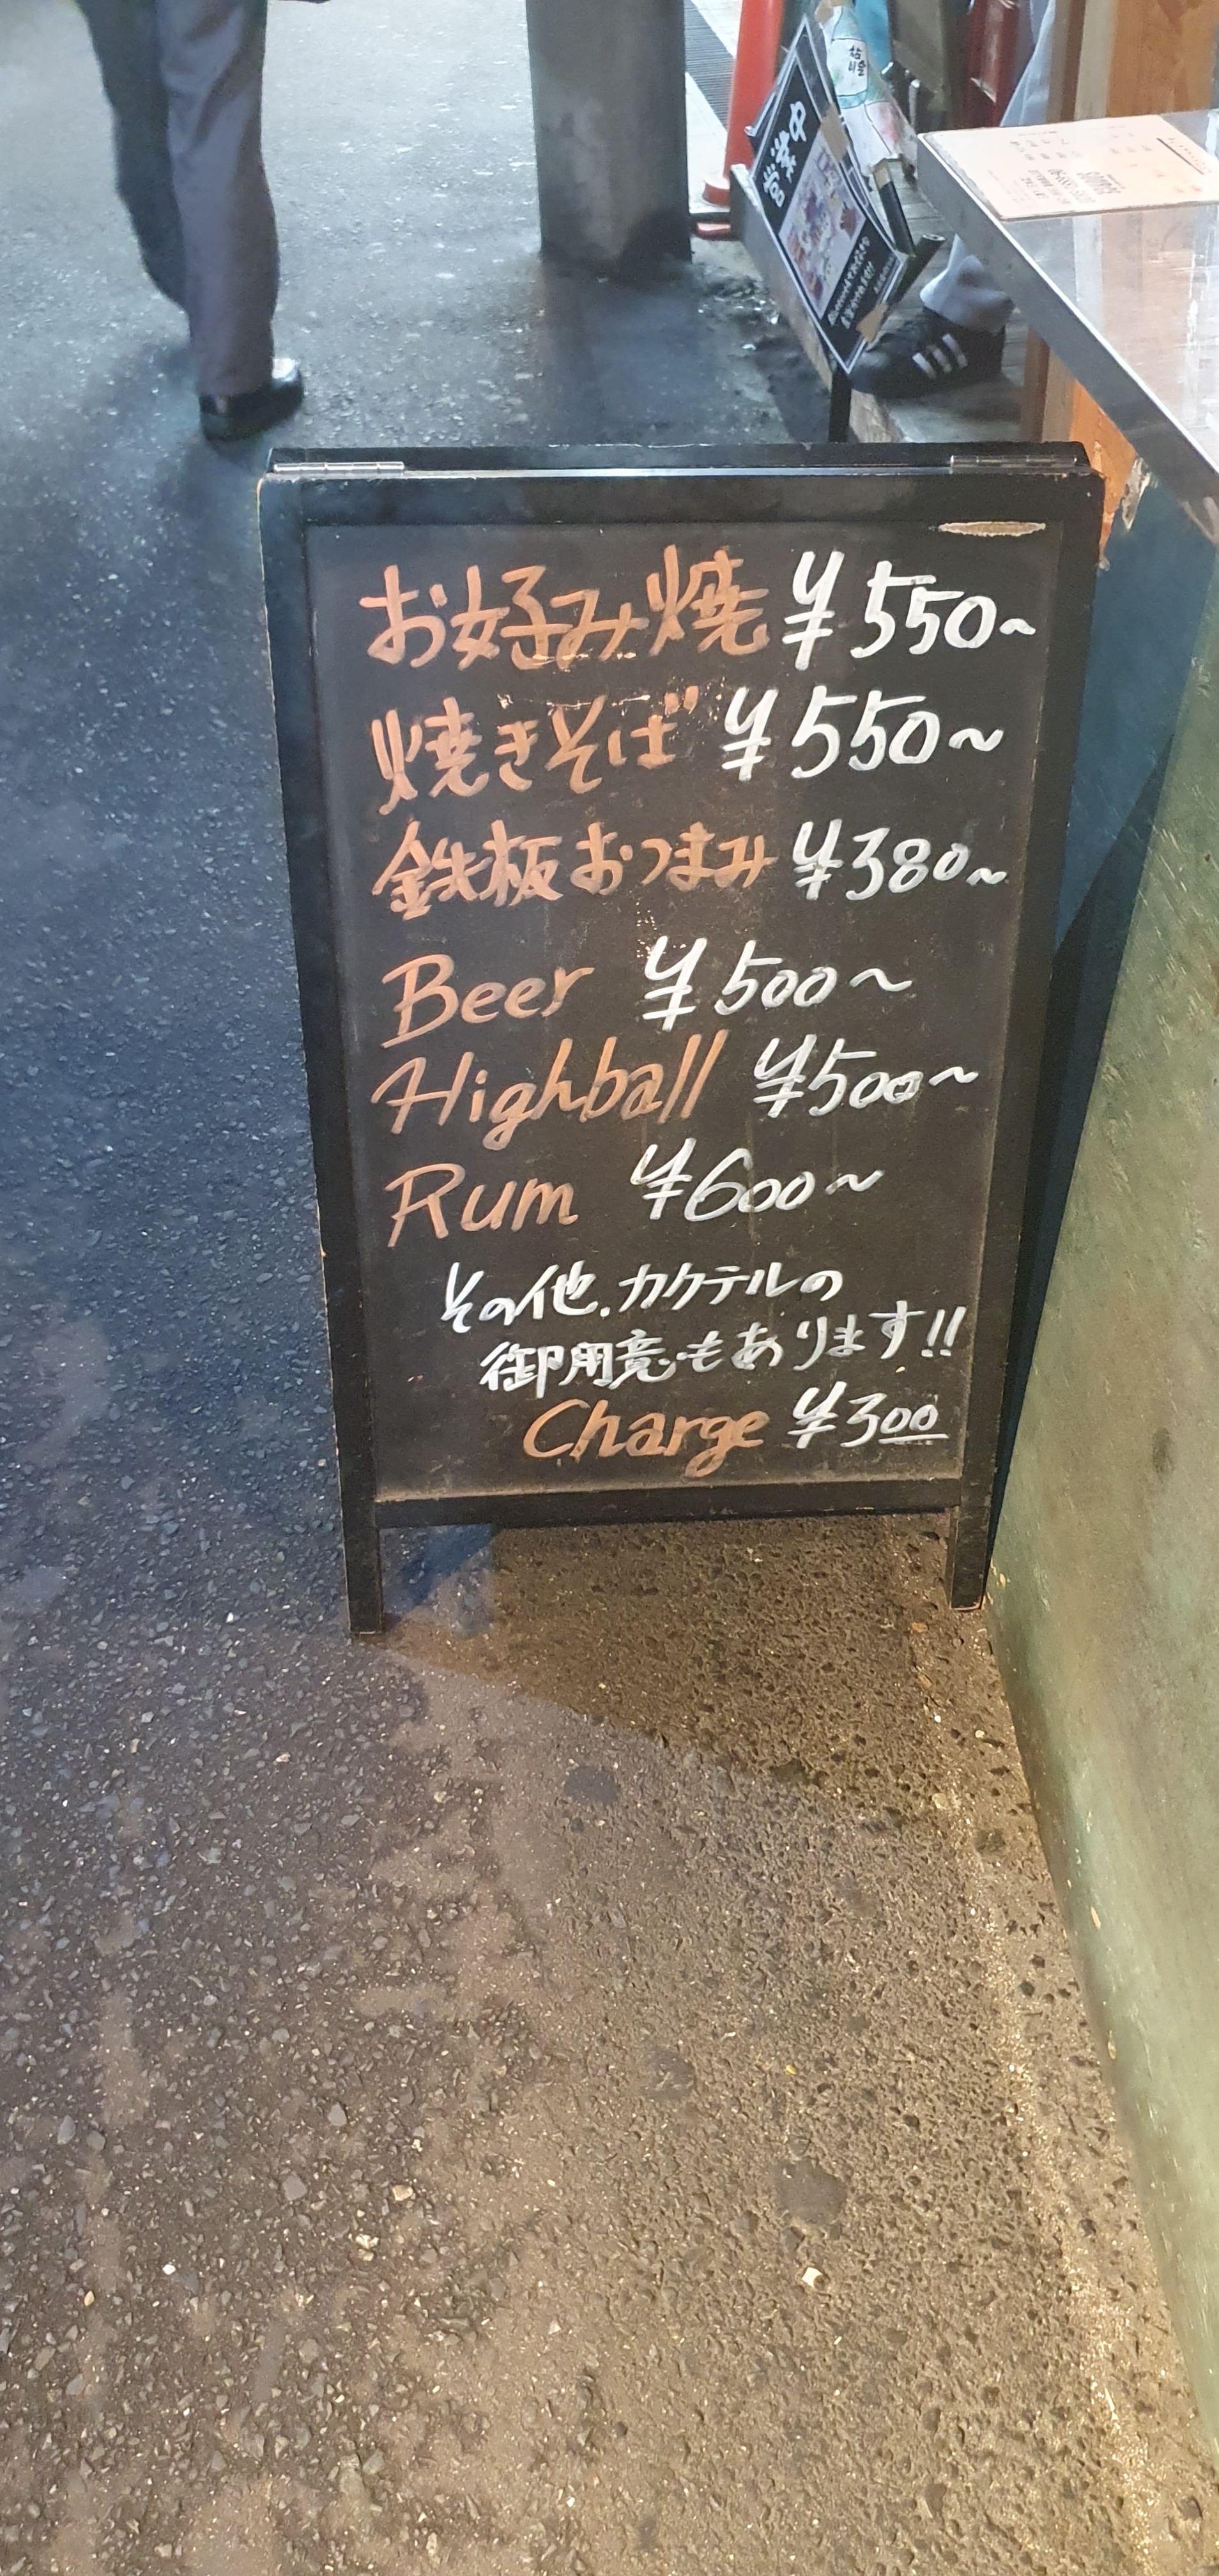 営業中
お好み焼 ¥550~
焼きそば ¥550~
鉄板おつまみ ¥380~
Beer ¥500~
Highball ¥500~
Rum ¥600~
その他.カクテルの
御用意もあります!!
Charge ¥300